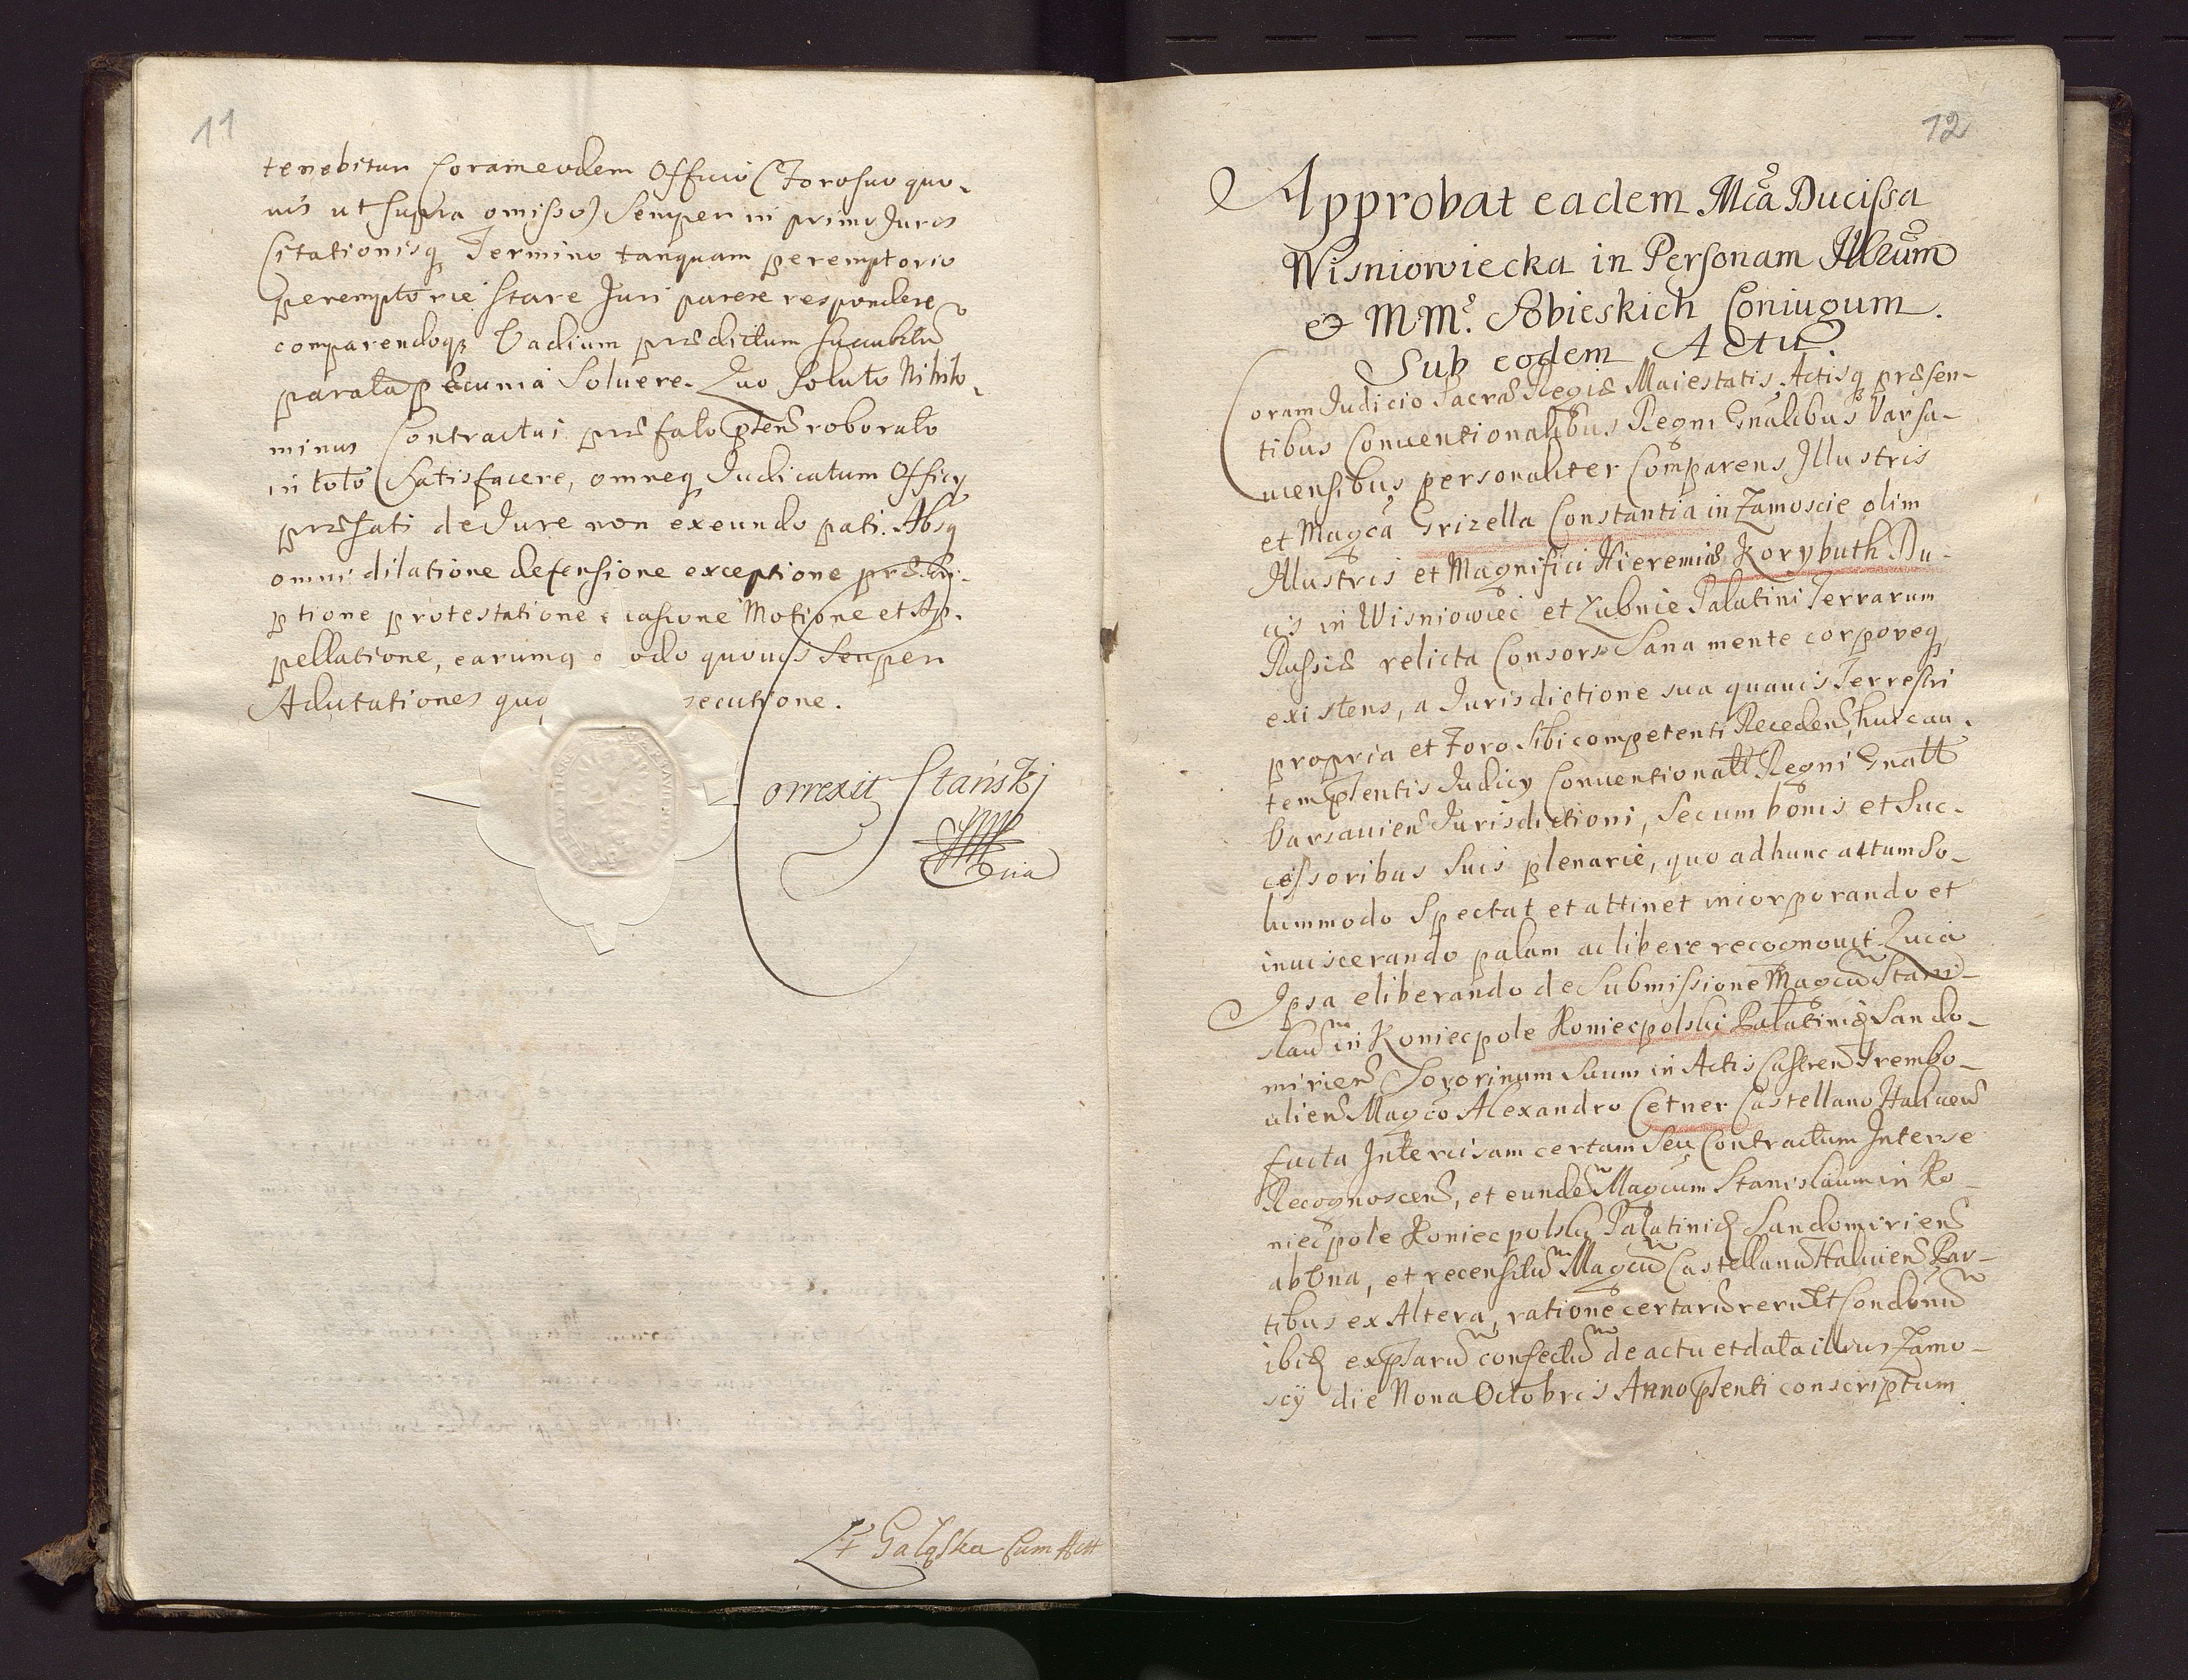 11
tenebitur Coram eodem Officio (Foro suo quo-
uis ut supra omisso) Semper in primo Juris
Citationisq Termino tanquam peremptorio
peremptorie stare Juri parere respondere
comparendoq Vadium prædictum succubitũ
parata pecunia Soluere. Quo soluto Nihilo-
minus Contractui præfato pñtẽ roborato
in toto Satisfacere, omneq Judicatum Officy
præfati de Jure non exeundo pati. Absq
omni dilatione defensione exceptione præscri-
ptione protestatione Motione et Ap-
pellatione, earumq quouis Semper
secutione.
Correxit Stański
mp
Cum Actt
12
Approbat eadem Mcã Ducissa
Wisniowiecka in Personam Illrũm
& MM. Sobieskich Coniugum.
Sub eodem Actu
Coram Judicio Sacræ Regiæ Maiestatis, Actisq præsen-
tibus Conuentionalibus Regni Gnalibus Varsa-
uiensibus personaliter Comparens Illustris
et Magcã Grizella Constantia in Zamoscie olim
Illustris et Magnifici Hieremiæ Korybuth Du-
cis in Wisniowiec et Lubnie Palatini Terrarum
Russiæ relicta Consors Sana mente corporeq
existens, a Jurisdictione sua quauis Terrestri
propria et Foro sibi competenti Recedens, huic au-
tem pñtentis Judicy Conuentionall Regni Gnall
Varsauien Jurisdictioni, se cum bonis et Suc-
cessoribus suis plenarie, quo ad hunc actum So-
lummodo Spectat et attinet incorporando et
inuiscerando palam ac libere recognouit. Quia
Ipsa eliberando de Submissione Magcũm Stani-
slaũm in Koniecpole Koniecpolski Palatinid Sando-
mirien Sororinum Suum in Actis Castren Trembo-
ulien Magco Alexandro Cetner Castellano Halicien
facta Intercisam certam Seu Contractum Inter se
Recognoscen, et eundẽm Magcum Stanislaum in Ko-
niecpole Koniecpolsky Palatinid Sandomirien
ab Vna, et recensitũm Magcũm Castellanũ Halicien Par-
tibus ex Altera, ratione certarũ rerũ et Condonũm
ibid exptarũm confectũm de actu et data illius Zamo-
scÿ die Nona Octobris Anno pñtenti conscriptum